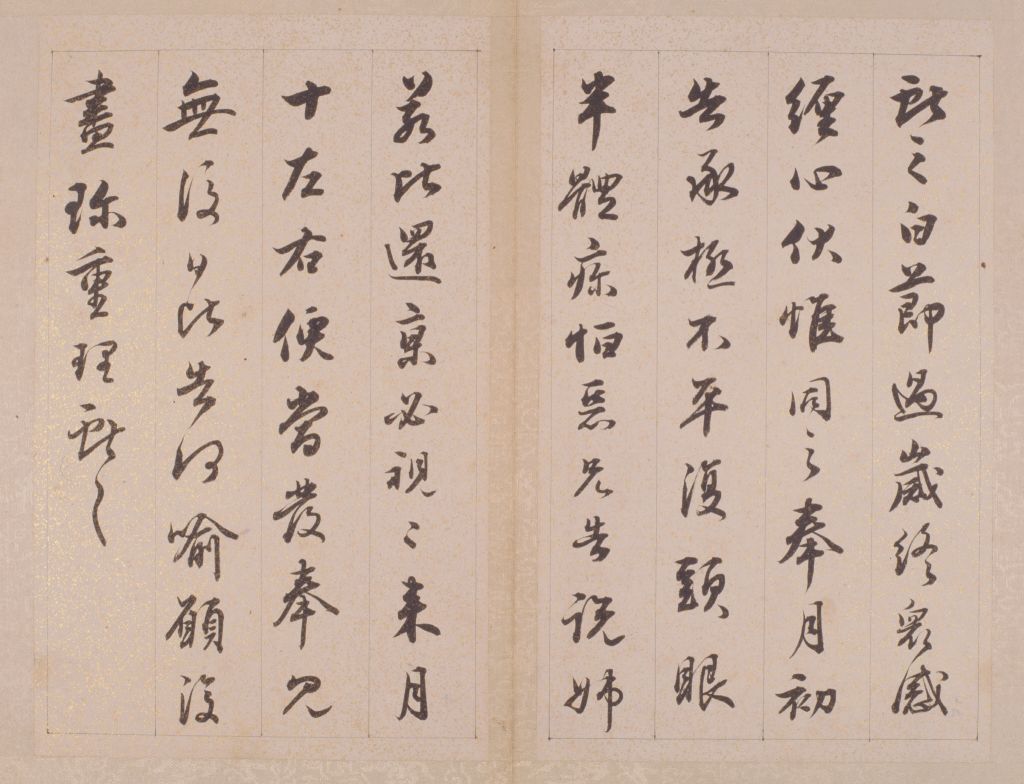 獻之白節過歲終眾感
纏心伏惟同之奉月初
告承極不平復頭眼
半體疼恒惡兄告說姊
差比還京必視之來月
十左右便當發奉見
無復比告何喻願復
盡珍重理獻之